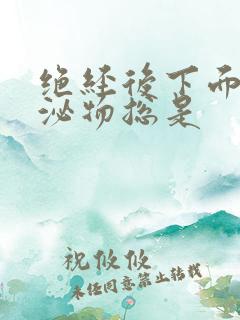 绝经後下面
泌物总是
祝攸攸
未经同意禁止转载